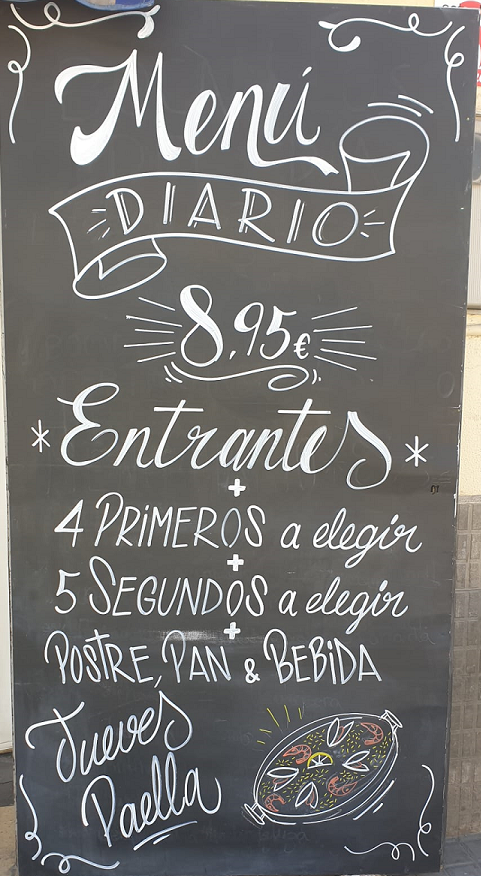 Menú
DIARIO
8,95€
* Entrantes *
+
4 PRiMEROS a elegir
+
5 SEGUNDOS a elegir
+
POSTRE, PAN & BEBiDA
Jueves
Paella